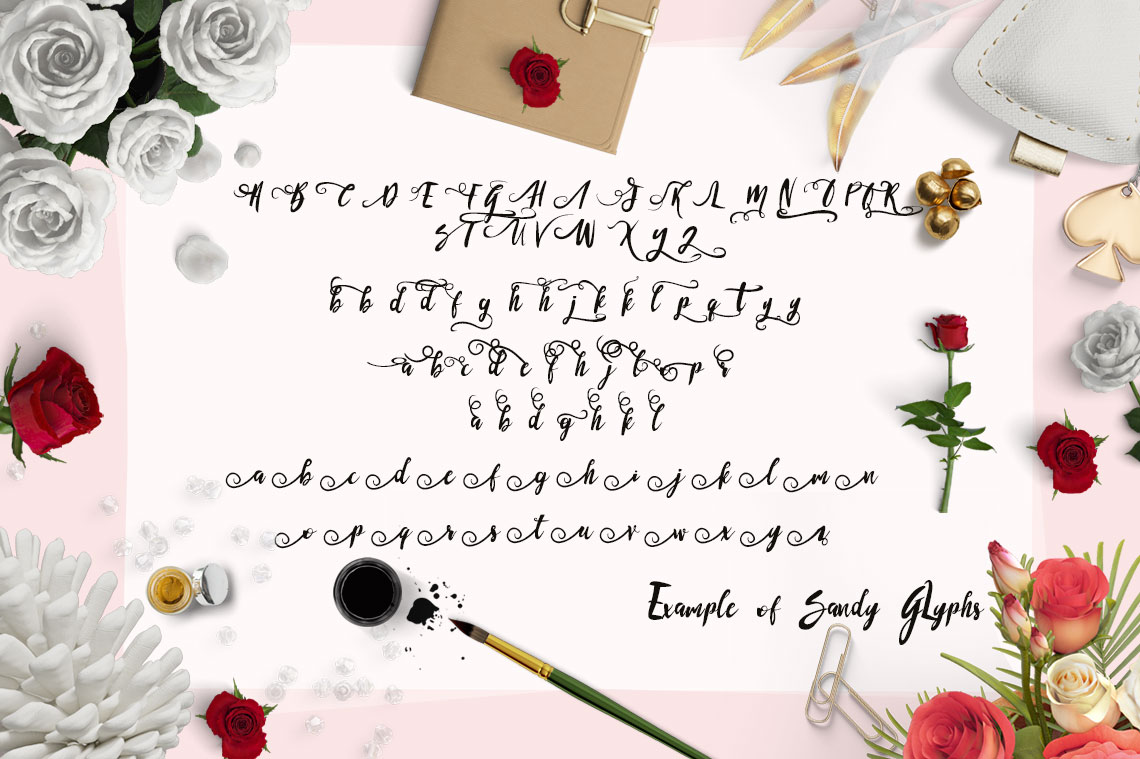 A B C D E F G H I J K L M N O P Q R
S T U V W X Y Z
b b d d f g h h j k k l p q t y y
a b c d e f h j l o p r
a b d g h k l
a b c d e f g h i j k l m n
o p q r s t u v w x y z
Example of Sandy GLyphs